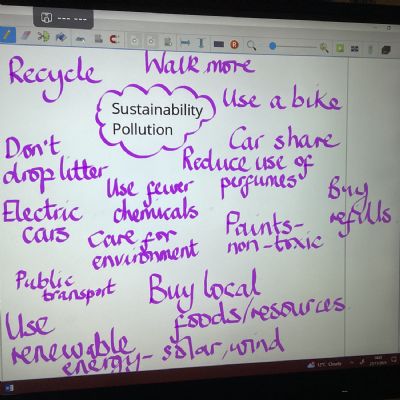 Recycle
Walk more
Sustainability
Pollution
Use a bike
Car share
Don't
drop litter
Reduce use of
perfumes
Use fewer
chemicals
Buy
refills
Electric
cars
Care for
environment
Paints-
non-toxic
Public
transport
Buy local
foods/resources
Use
renewable
energy- solar, wind
12°C Cloudy